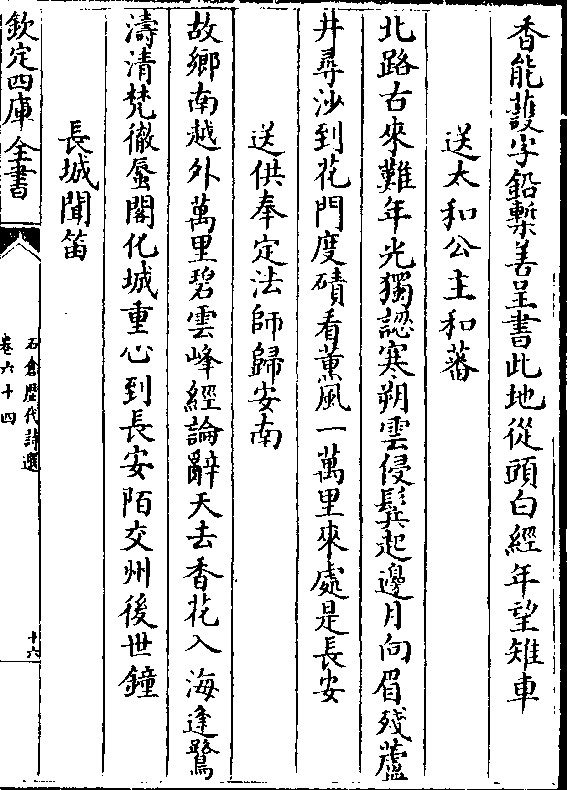 香能䕶字鉛槧善呈書此地從頭白經年望雉車
送太和公主和蕃
北路古來難年光獨認寒朔雲侵鬂起邊月向眉殘蘆
井尋沙到花門度磧看薰風一萬里來處是長安
送供奉定法師歸安南
故鄉南越外萬里碧雲峰經論辭天去香花入海逢鷺
濤清梵徹蜃閣化城重心到長安陌交州後世鐘
長城聞笛
欽定四庫全書
石倉歴代詩選
卷六十四
十六